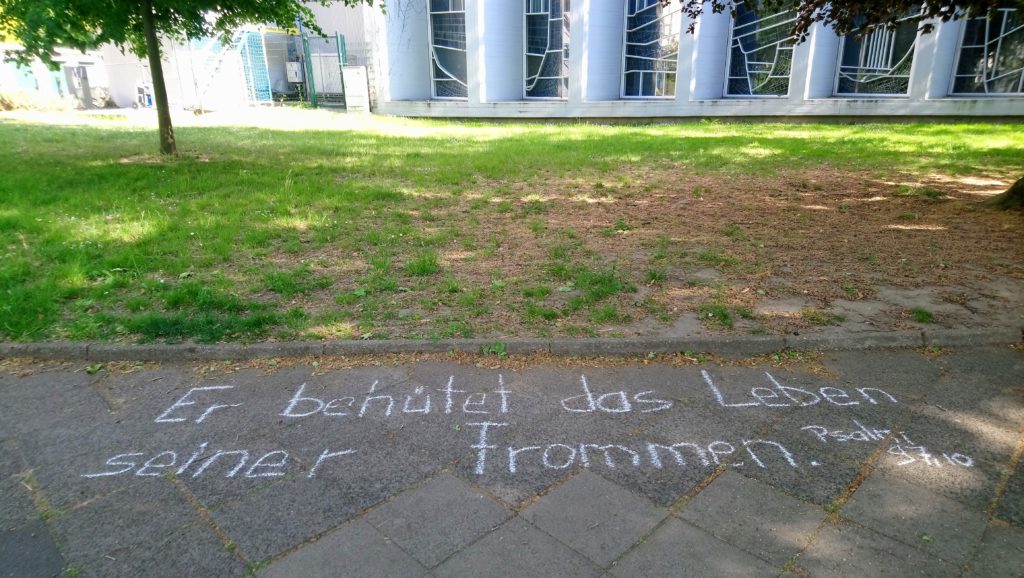 Er behütet das Leben
seiner Frommen. Psalm
97,10